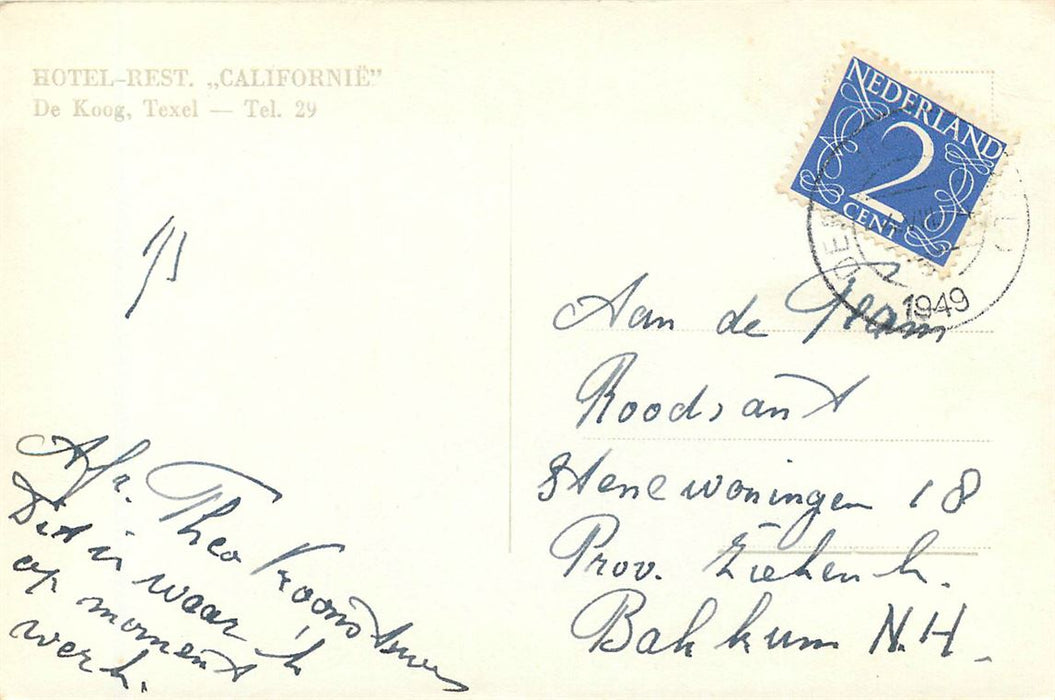 HOTEL-REST. „CALIFORNIË”
De Koog, Texel — Tel. 29
NEDERLAND
2
CENT
DE
1949
Aan de
Roodsant
Stenewoningen 18
Prov. Ziekenh.
Bakkum N.H.
Afz. Theo
Dit is waar ik
op moment
werk.